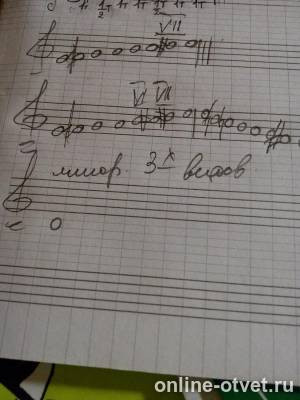 1/2
VII
VI VII
минор 3х видов
online-otvet.ru